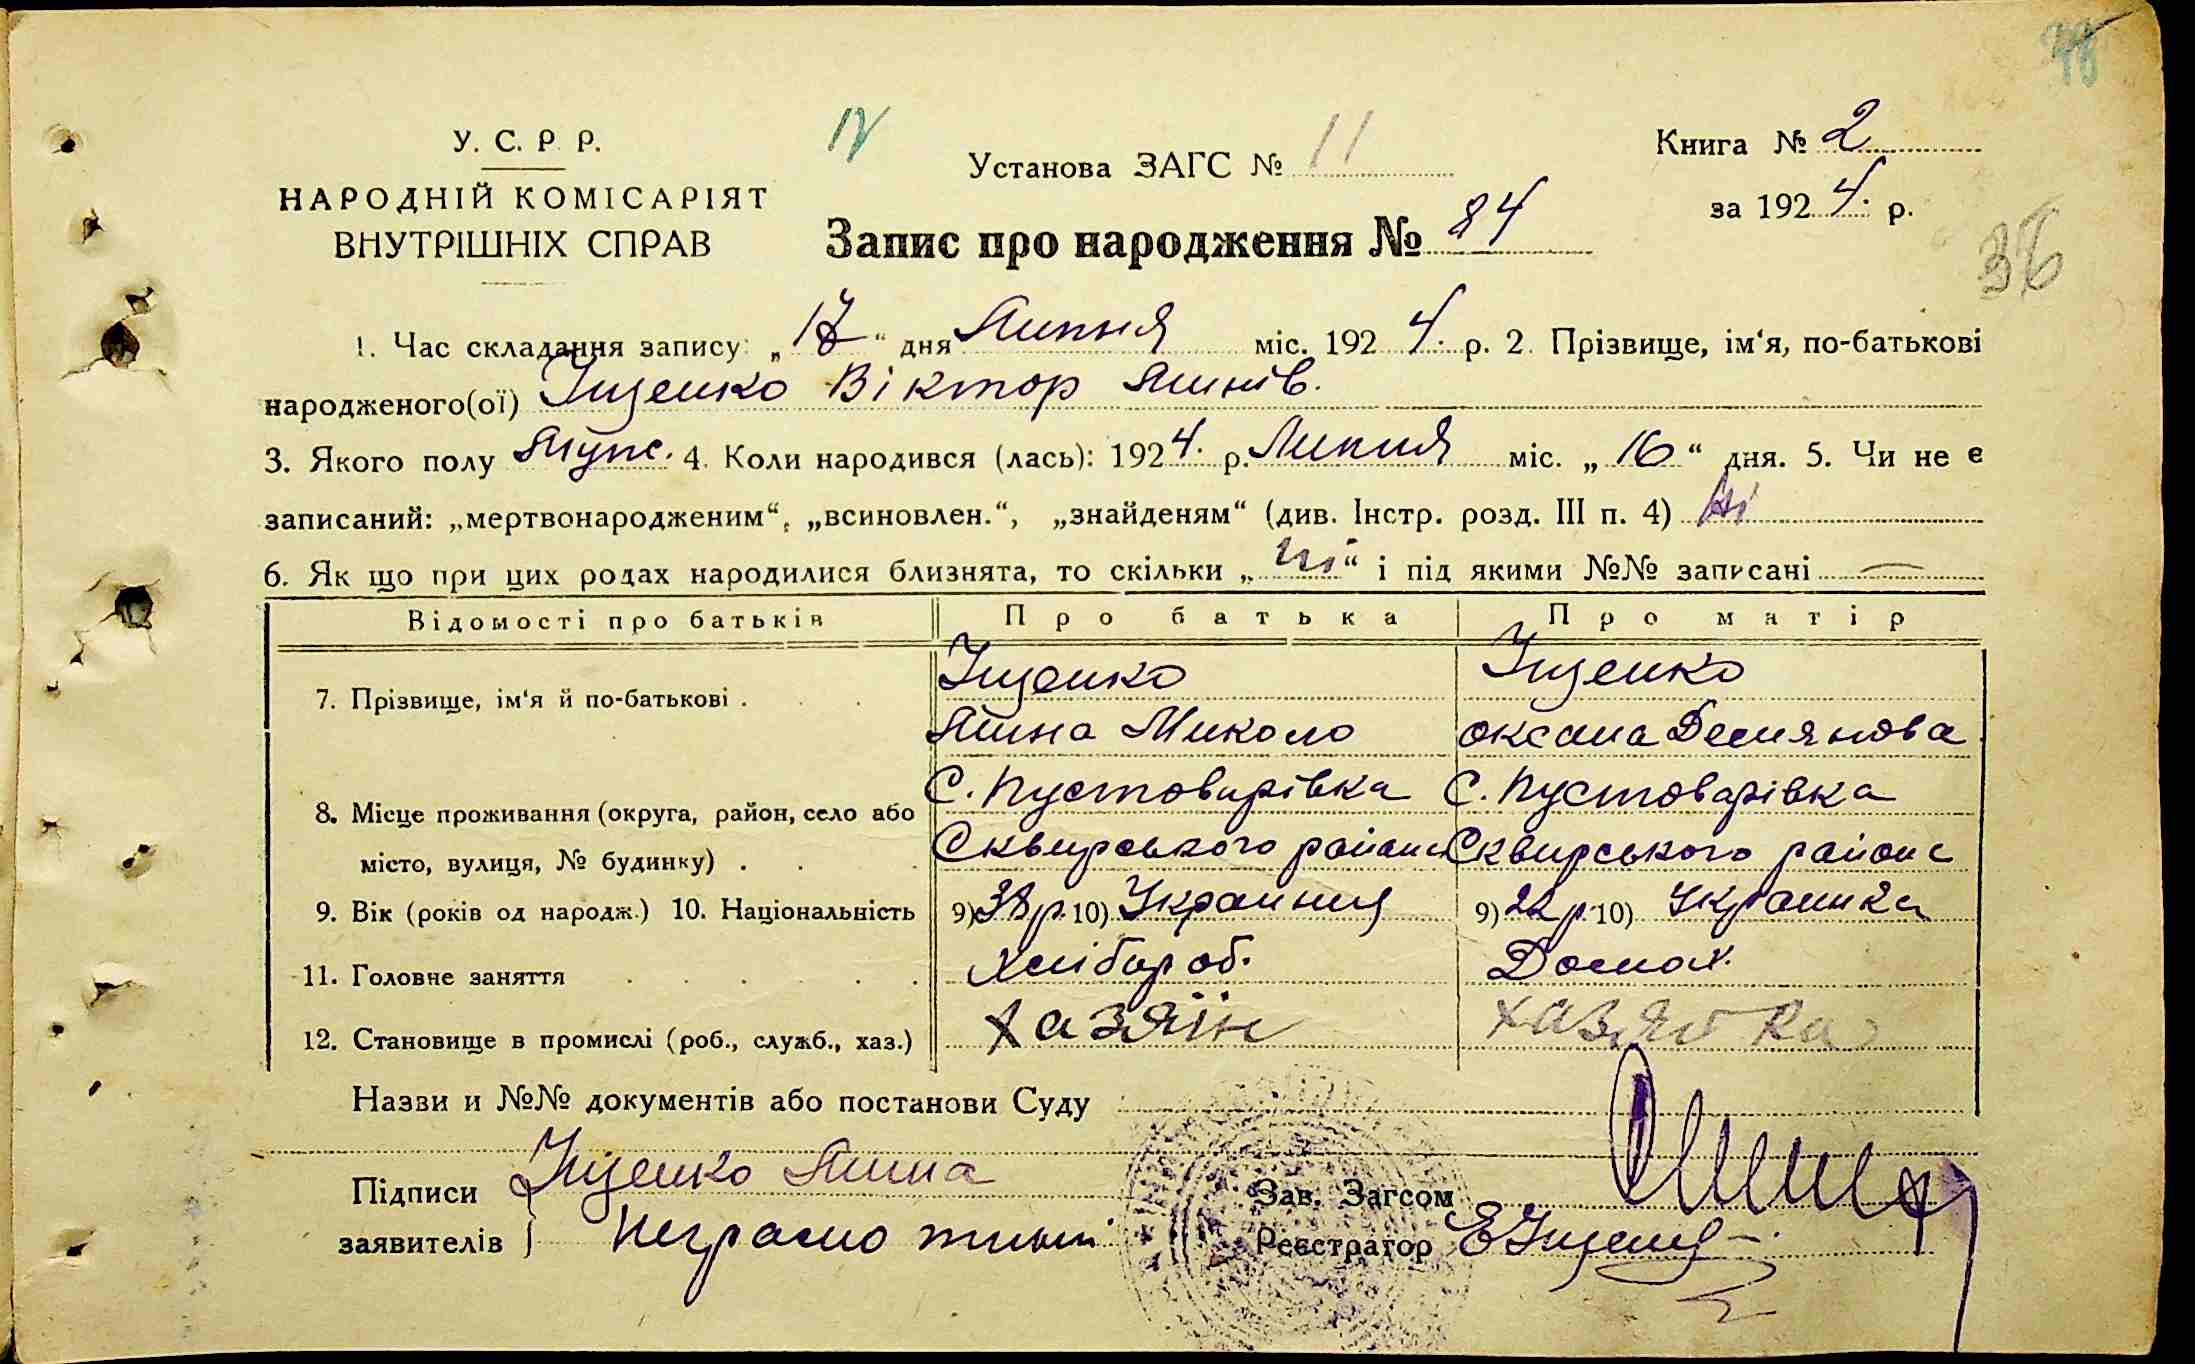 У. С. Р. Р.
НАРОДНІЙ КОМІСАРІЯТ
ВНУТРІШНІХ СПРАВ
IV
Установа ЗАГС № 11
Запис про народження № 84
Книга № 2
за 1924 р.
36
1. Час складання запису: „17“ дня Липня міс. 1924. р. 2. Прізвище, ім‘я, по-батькові
народженого(ої) Іщенко Віктор
3. Якого полу Муж. 4. Коли народився (лась): 1924. р. Липня міс. „16“ дня. 5. Чи не є
записаний: „мертвонародженим“, „всиновлен.“, „знайденям“ (див. Інстр. розд. III п. 4) Ні
6. Як що при цих родах народилися близнята, то скільки „ні“ і під якими №№ записані —
Відомості про батьків Про батька Про матір
7. Прізвище, ім‘я й по-батькові . Іщенко Іщенко
Микола Оксана Демянова
С. Пустоварівка С. Пустоварівка
8. Місце проживання (округа, район, село або
місто, вулиця, № будинку) . Сквирського району Сквирського району
9. Вік (років од народж.) 10. Національність 9) 38 р. 10) Украинец 9) 22 р. 10) Украинка
11. Головне заняття Хлібороб. Домох.
12. Становище в промислі (роб., служб., хаз.) хазяїн хазяйка
Назви и №№ документів або постанови Суду
Підписи Іщенко
заявителів неграмотний
Зав. Загсом
Реєстратор ЕІщенко